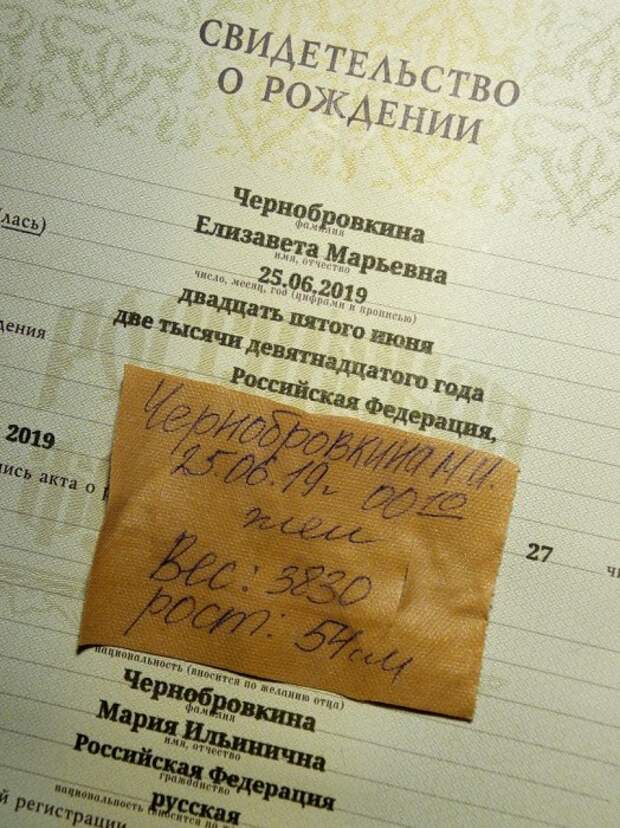 СВИДЕТЕЛЬСТВО
О РОЖДЕНИИ
Чернобровкина
фамилия
лась)
Елизавета Марьевна
имя, отчество
25.06.2019
число, месяц, год (цифрами и прописью)
двадцать пятого июня
две тысячи девятнадцатого года
Российская Федерация,
2019
акта о
27
Чернобровкина М.И.
25.06.19г 00 10
жен
Вес: 3830
рост: 54см
национальность (вносится по желанию отца)
Чернобровкина
фамилия
Мария Ильинична
имя, отчество
Российская Федерация
гражданство
русская
национальность (вносится по
регистрации